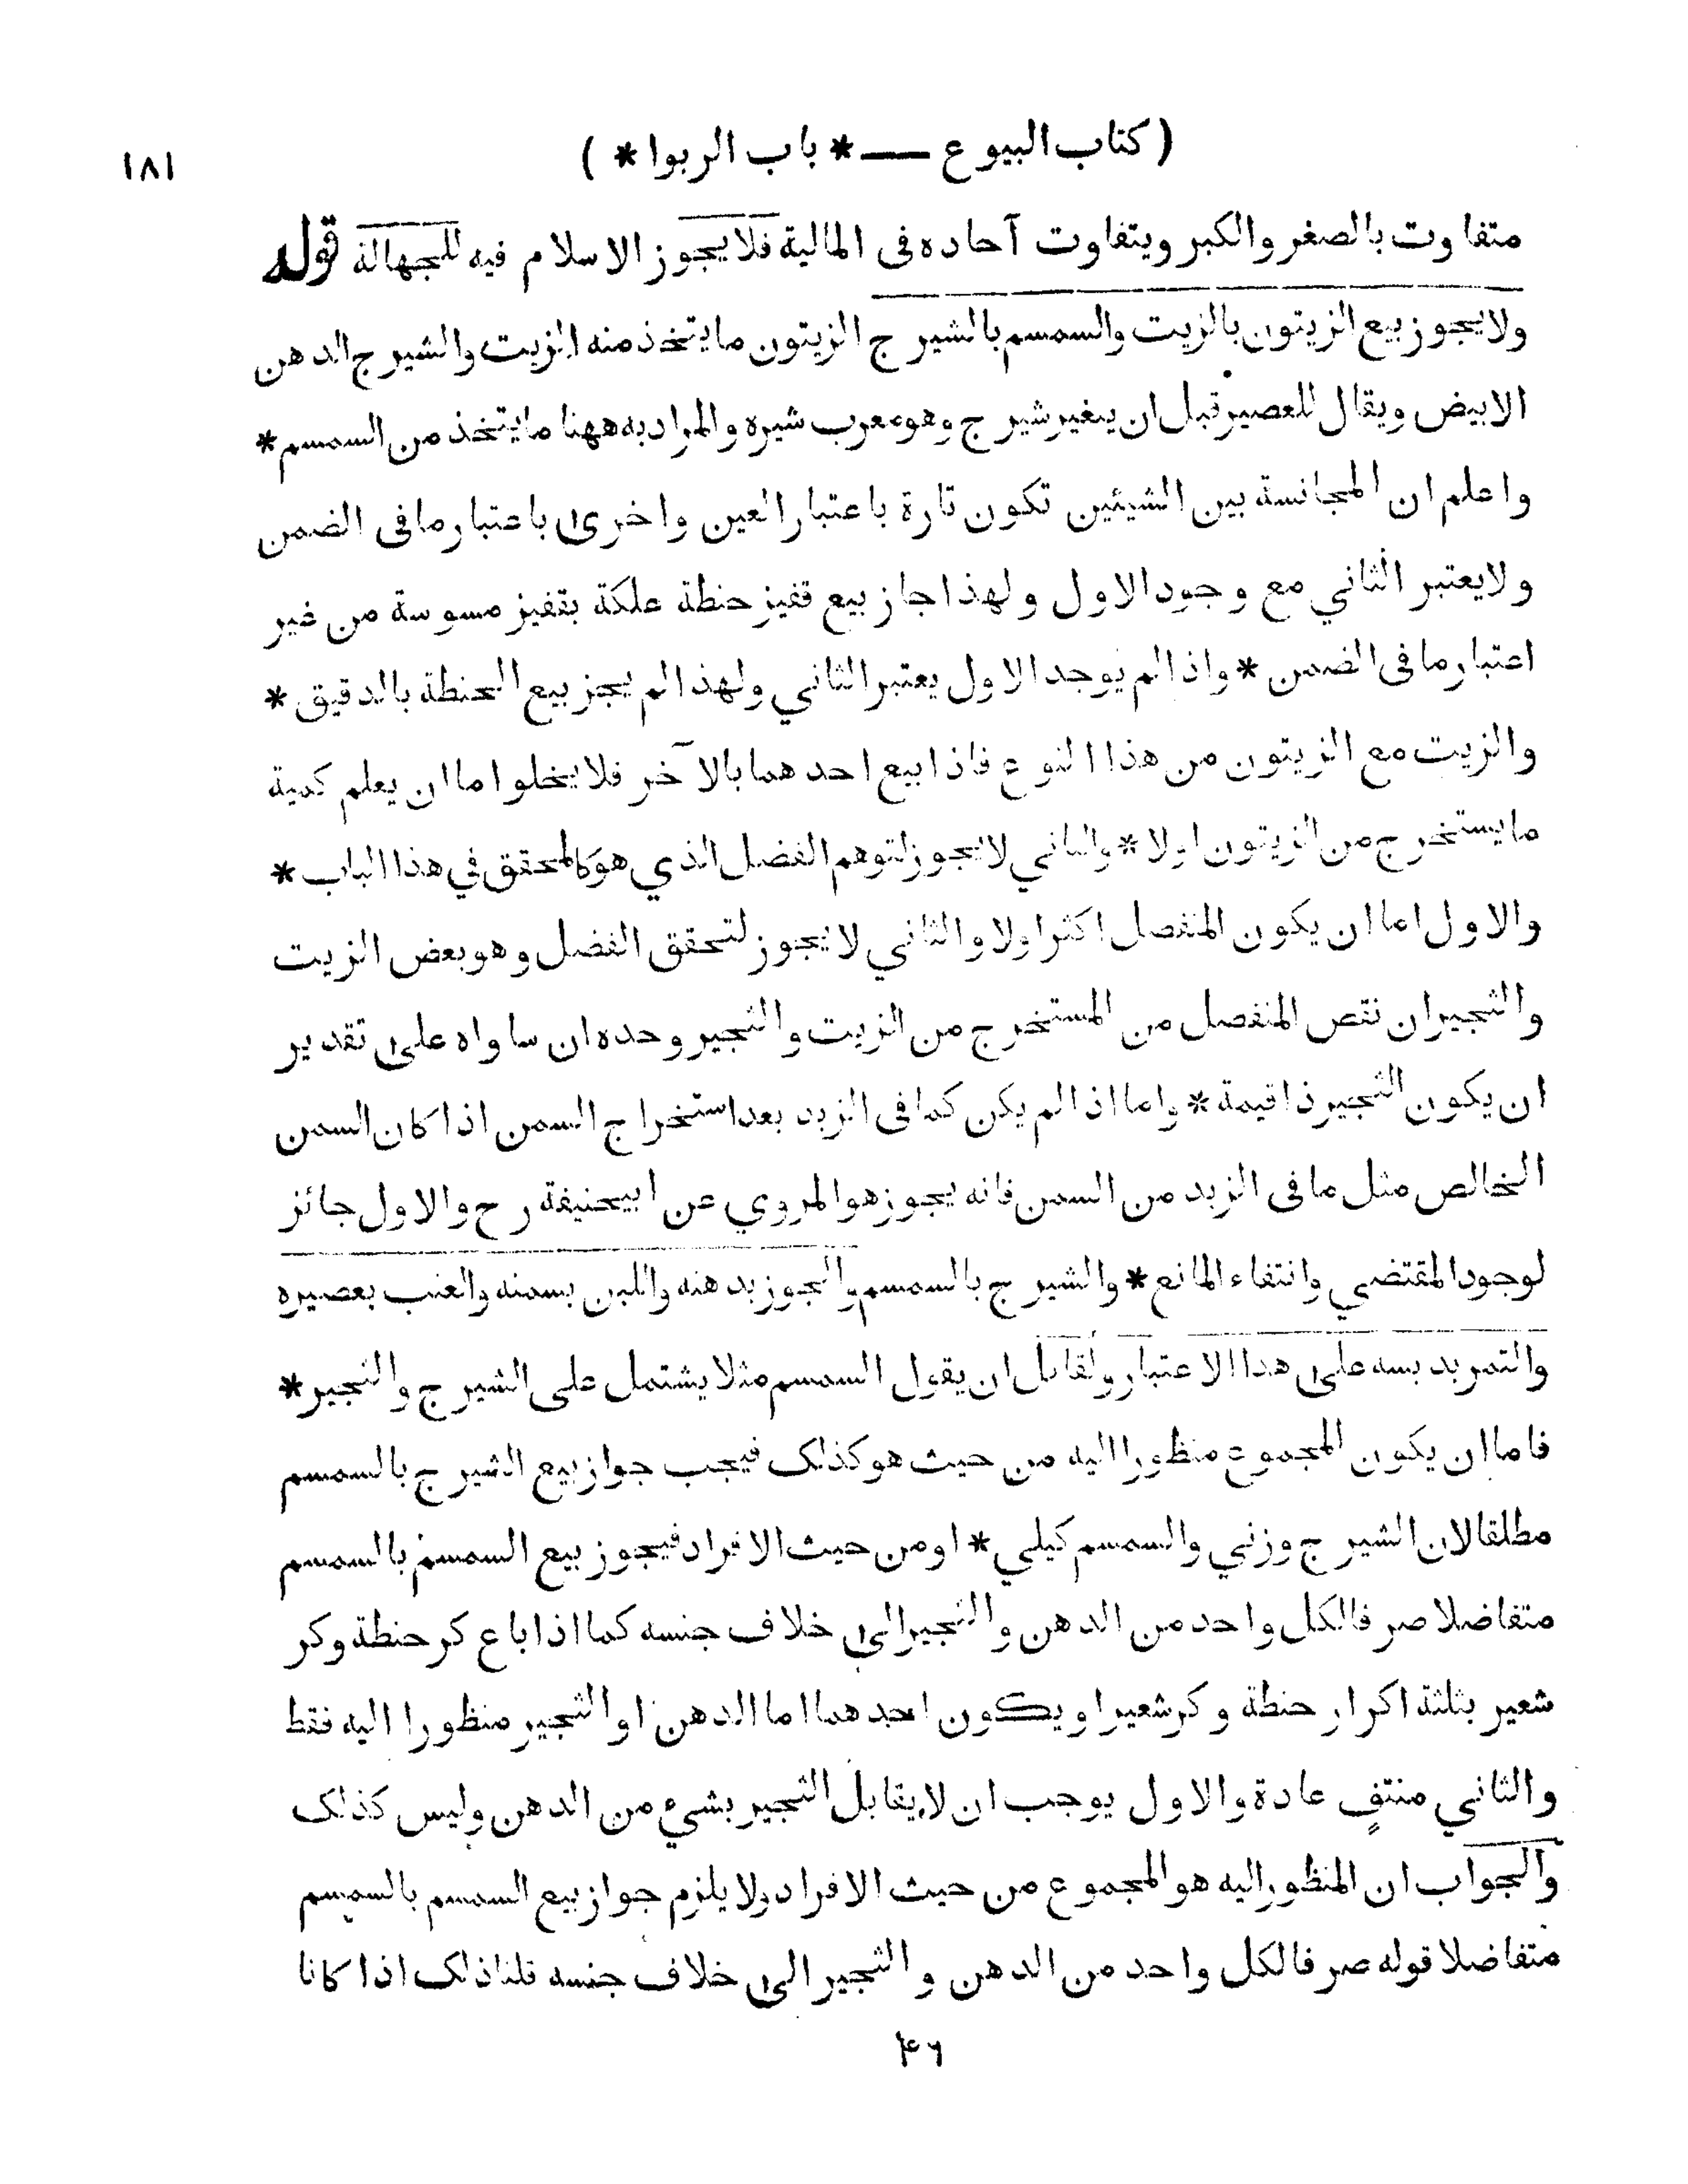 ( كتاب البيوع — * باب الربوا * )
١٨١
متفاوت بالصغر والكبر ويتفاوت آحاده فى المالية فلا يجوز الاسلام فيه للجهالة قوله
ولا يجوز بيع الزيتون بالزيت والسمسم بالشيرج الزيتون ما يتخذ منه الزيت والشيرج الدهن
الابيض ويقال للعصير قبل ان يتغير شيرج وهو معرب شيره والمراد به ههنا ما يتخذ من السمسم *
واعلم ان المجانسة بين الشيئين تكون تارة باعتبار العين واخرى باعتبار ما فى الضمن
ولا يعتبر الثاني مع وجود الاول ولهذا جاز بيع قفيز حنطة علكة بقفيز مسوسة من غير
اعتبار ما فى الضمن * واذا لم يوجد الاول يعتبر الثاني ولهذا لم يجز بيع الحنطة بالدقيق *
والزيت مع الزيتون من هذا النوع فاذا بيع احدهما بالآخر فلا يخلوا ما ان يعلم كمية
ما يستخرج من الزيتون اولا * والثاني لا يجوز لتوهم الفضل الذي هو كالمحقق في هذا الباب *
والاول اما ان يكون المنفصل اكثر اولا والثاني لا يجوز لتحقق الفضل وهو بعض الزيت
والثجير ان نقص المنفصل من المستخرج من الزيت والثجير وحده ان ساواه على تقدير
ان يكون الثجير ذا قيمة * واما اذا لم يكن كما فى الزبد بعد استخراج السمن اذا كان السمن
الخالص مثل ما فى الزبد من السمن فانه يجوز هو المروي عن ابيحنيفة رح والاول جائز
لوجود المقتضي وانتفاء المانع * والشيرج بالسمسم والجوز بدهنه واللبن بسمنه والعنب بعصيره
والتمر بدبسه على هذا الاعتبار ولقائل ان يقول السمسم مثلا يشتمل على الشيرج والثجير *
فاما ان يكون المجموع منظورا اليه من حيث هو كذلك فيجب جواز بيع الشيرج بالسمسم
مطلقا لان الشيرج وزني والسمسم كيلي * او من حيث الافراد فيجوز بيع السمسم بالسمسم
متفاضلا صرفا لكل واحد من الدهن والثجير الى خلاف جنسه كما اذا باع كر حنطة وكر
شعير بثلثة اكرار حنطة وكر شعير او يكون احدهما اما الدهن او الثجير منظورا اليه فقط
والثاني منتفٍ عادة والاول يوجب ان لا يقابل الثجير بشيء من الدهن وليس كذلك
والجواب ان المنظور اليه هو المجموع من حيث الافراد ولا يلزم جواز بيع السمسم بالسمسم
متفاضلا قوله صرفا لكل واحد من الدهن والثجير الى خلاف جنسه قلنا ذلك اذا كانا
۴٦